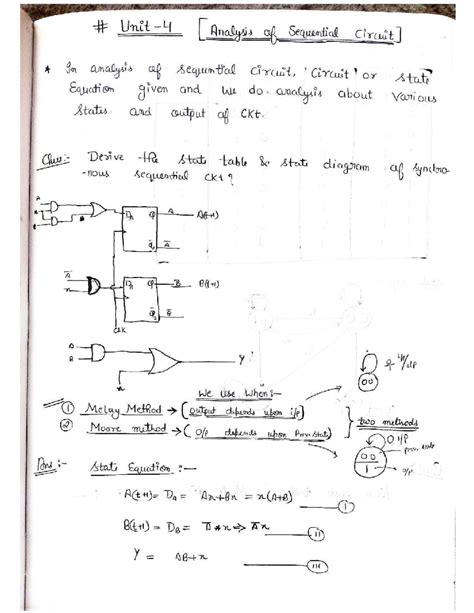 # Unit-4 [Analysis of Sequential Circuit]
* In analysis of sequential Circuit, 'Circuit' or state
Equation given and we do analysis about various
states and output of CKt.
Ques:- Derive the state table & state diagram of synchro-
nous sequential CKt?
A
x
B
DA Q A A(t+1)
Q̅ A̅
A̅
x
Q B B(t+1)
Q̅ B̅
CLK
A
B
Y
x
We use When:-
① Melay Method → (output depends upon i/p)
② Moore method → (O/P depends upon Prev. State)
} two methods
00
i/p
o/p
i/p
00
1
o/p
Ans:- State Equation :-
A(t+1) = DA = Ax+Bx = x(A+B)
I
B(t+1) = DB = A̅x
II
Y = AB+x
III